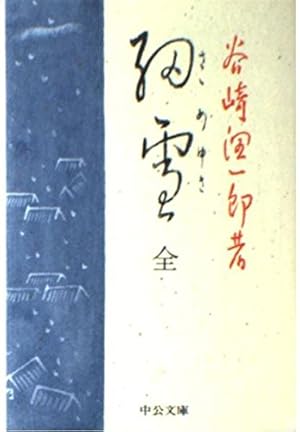 谷崎潤一郎著
細雪
さめゆき
全
中公文庫